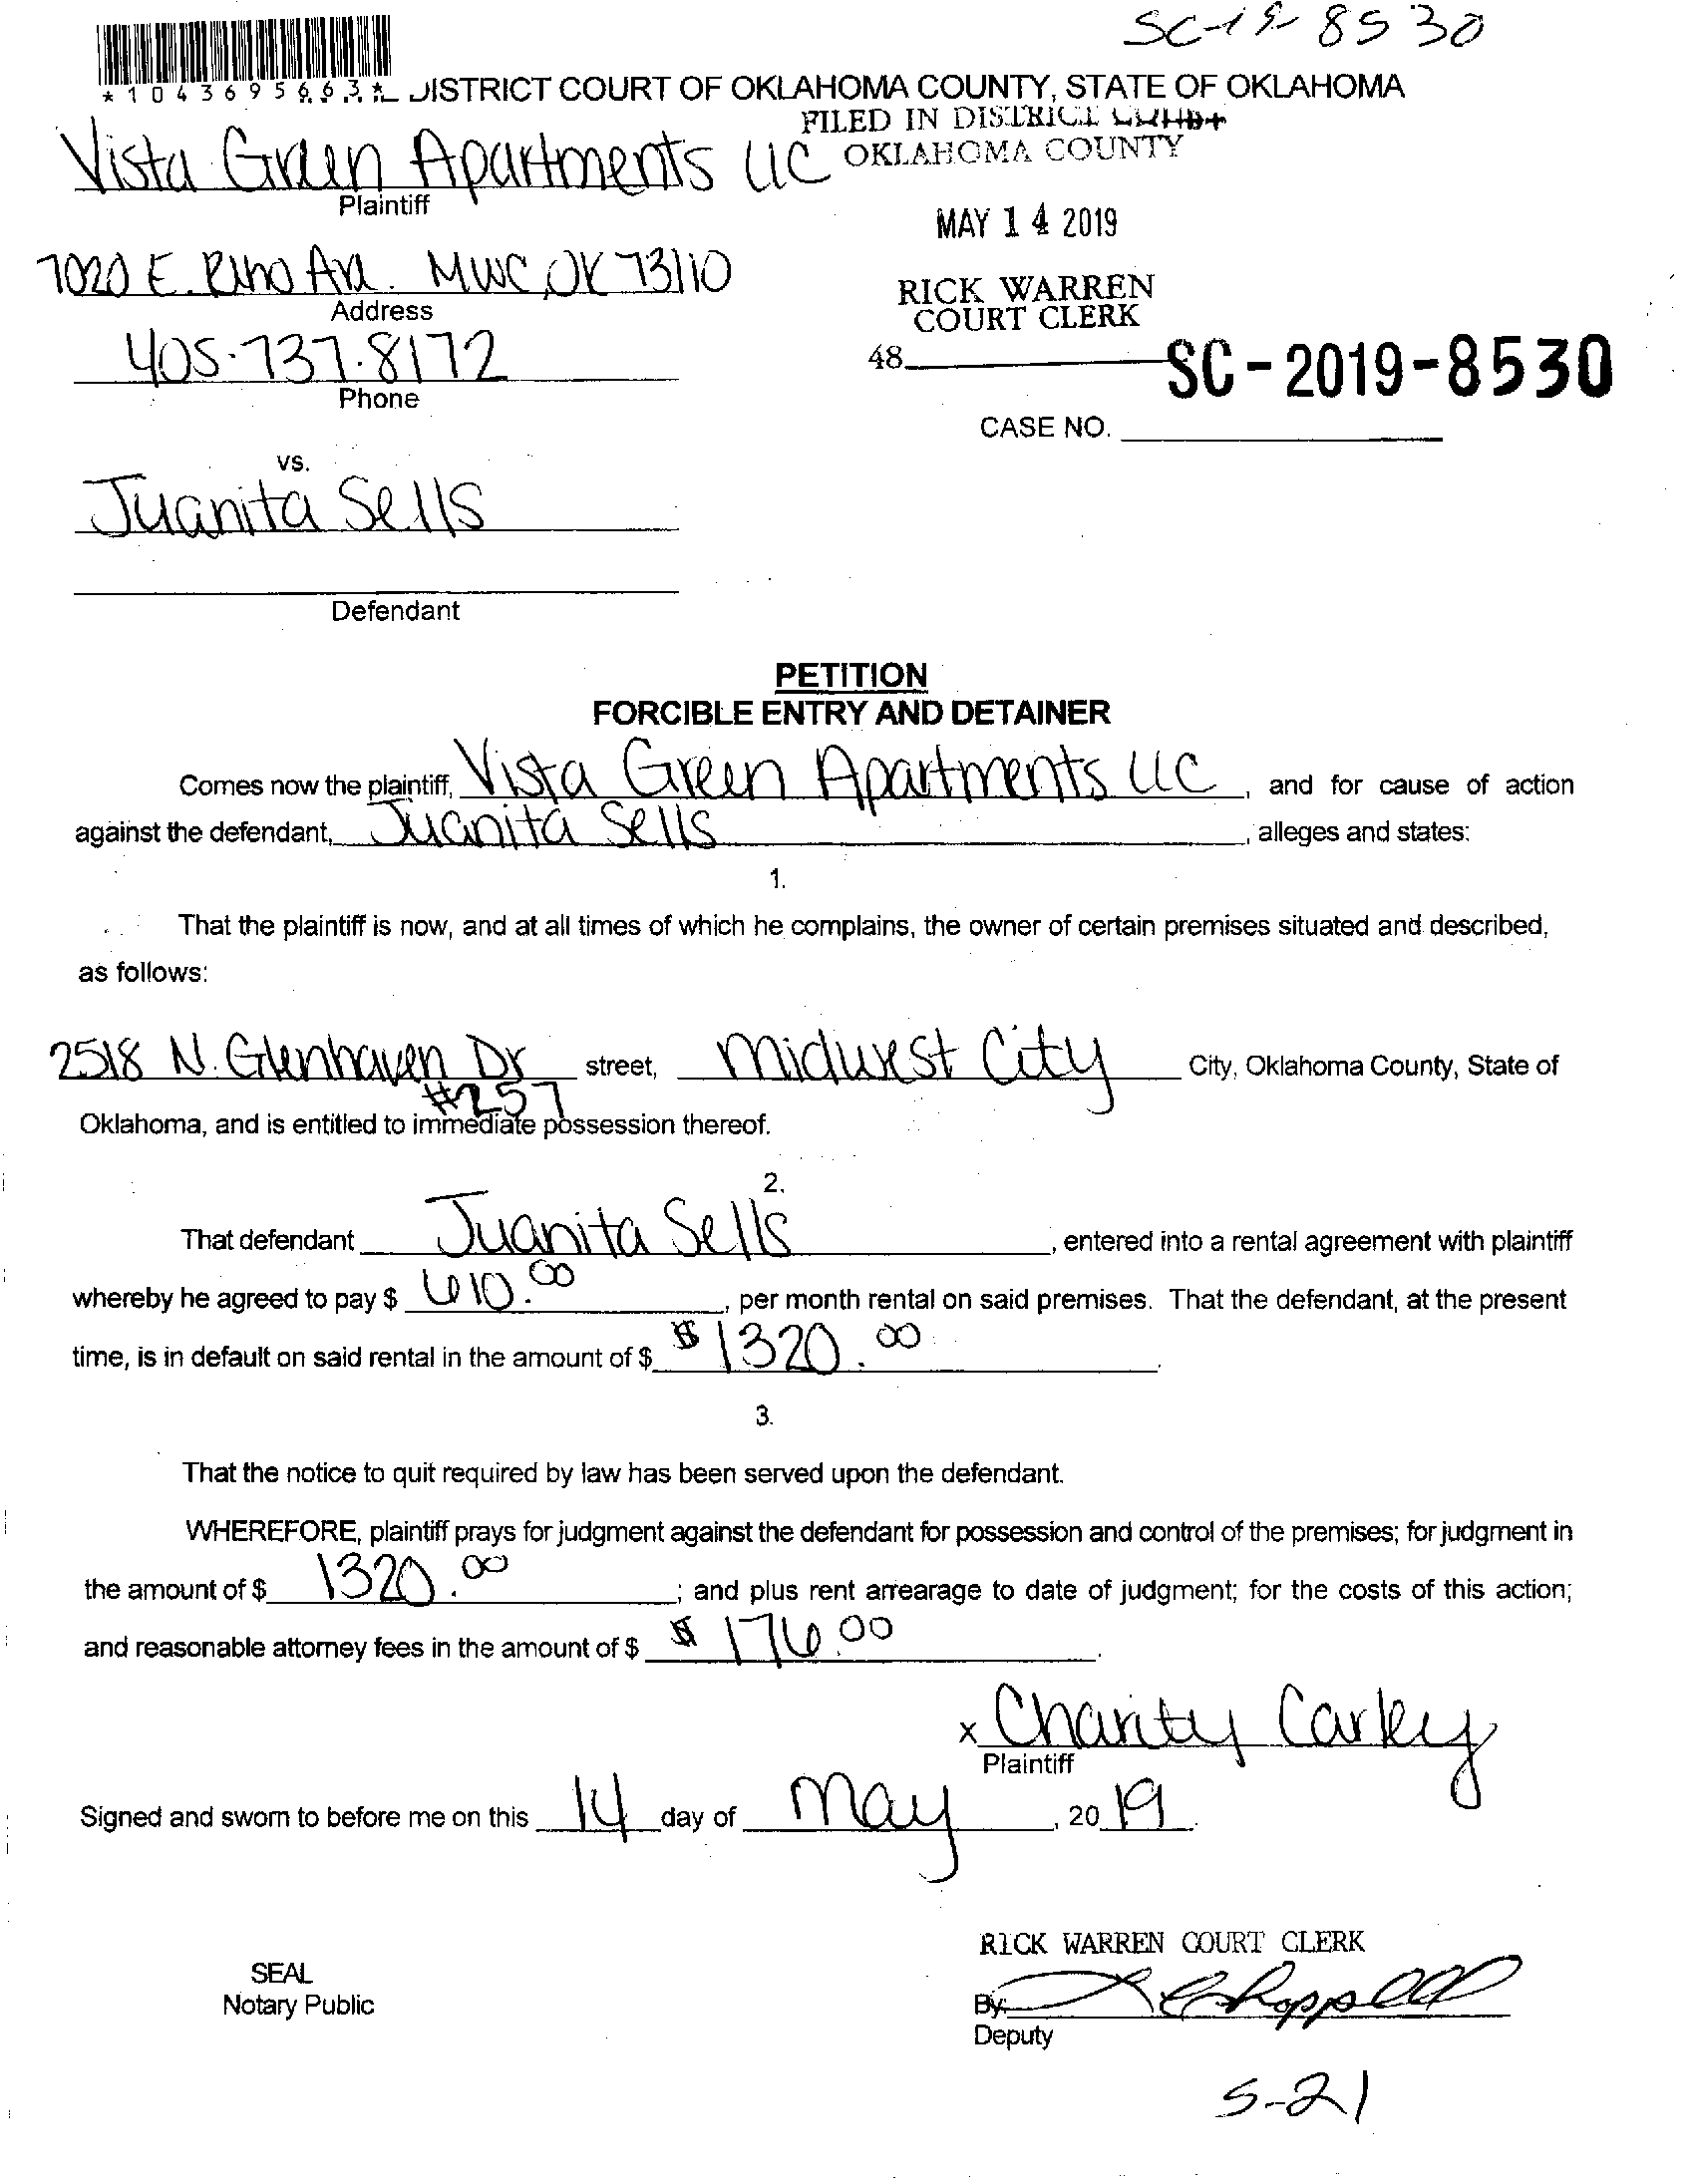 SC-19-8530
*1043695663* DISTRICT COURT OF OKLAHOMA COUNTY, STATE OF OKLAHOMA
FILED IN DISTRICT COURT
Vista Green Apartments LLC OKLAHOMA COUNTY
Plaintiff
MAY 14 2019
7020 E. Reno Ave. MWC, OK 73110
Address
RICK WARREN
COURT CLERK
405.737.8172
Phone
48
SC-2019-8530
CASE NO.
vs.
Juanita Sells
Defendant
PETITION
FORCIBLE ENTRY AND DETAINER
Comes now the plaintiff, Vista Green Apartments LLC, and for cause of action
against the defendant, Juanita Sells, alleges and states:
1.
That the plaintiff is now, and at all times of which he complains, the owner of certain premises situated and described,
as follows:
2518 N. Glenhaven Dr street, Midwest City City, Oklahoma County, State of
#257
Oklahoma, and is entitled to immediate possession thereof.
2.
That defendant Juanita Sells, entered into a rental agreement with plaintiff
whereby he agreed to pay $ 610.00, per month rental on said premises. That the defendant, at the present
time, is in default on said rental in the amount of $ $1320.00.
3.
That the notice to quit required by law has been served upon the defendant.
WHEREFORE, plaintiff prays for judgment against the defendant for possession and control of the premises; for judgment in
the amount of $ 1320.00; and plus rent arrearage to date of judgment; for the costs of this action;
and reasonable attorney fees in the amount of $ $176.00.
x Charity Carley
Plaintiff
Signed and sworn to before me on this 14 day of May, 2019.
RICK WARREN COURT CLERK
SEAL
Notary Public
By:
Deputy
5-21